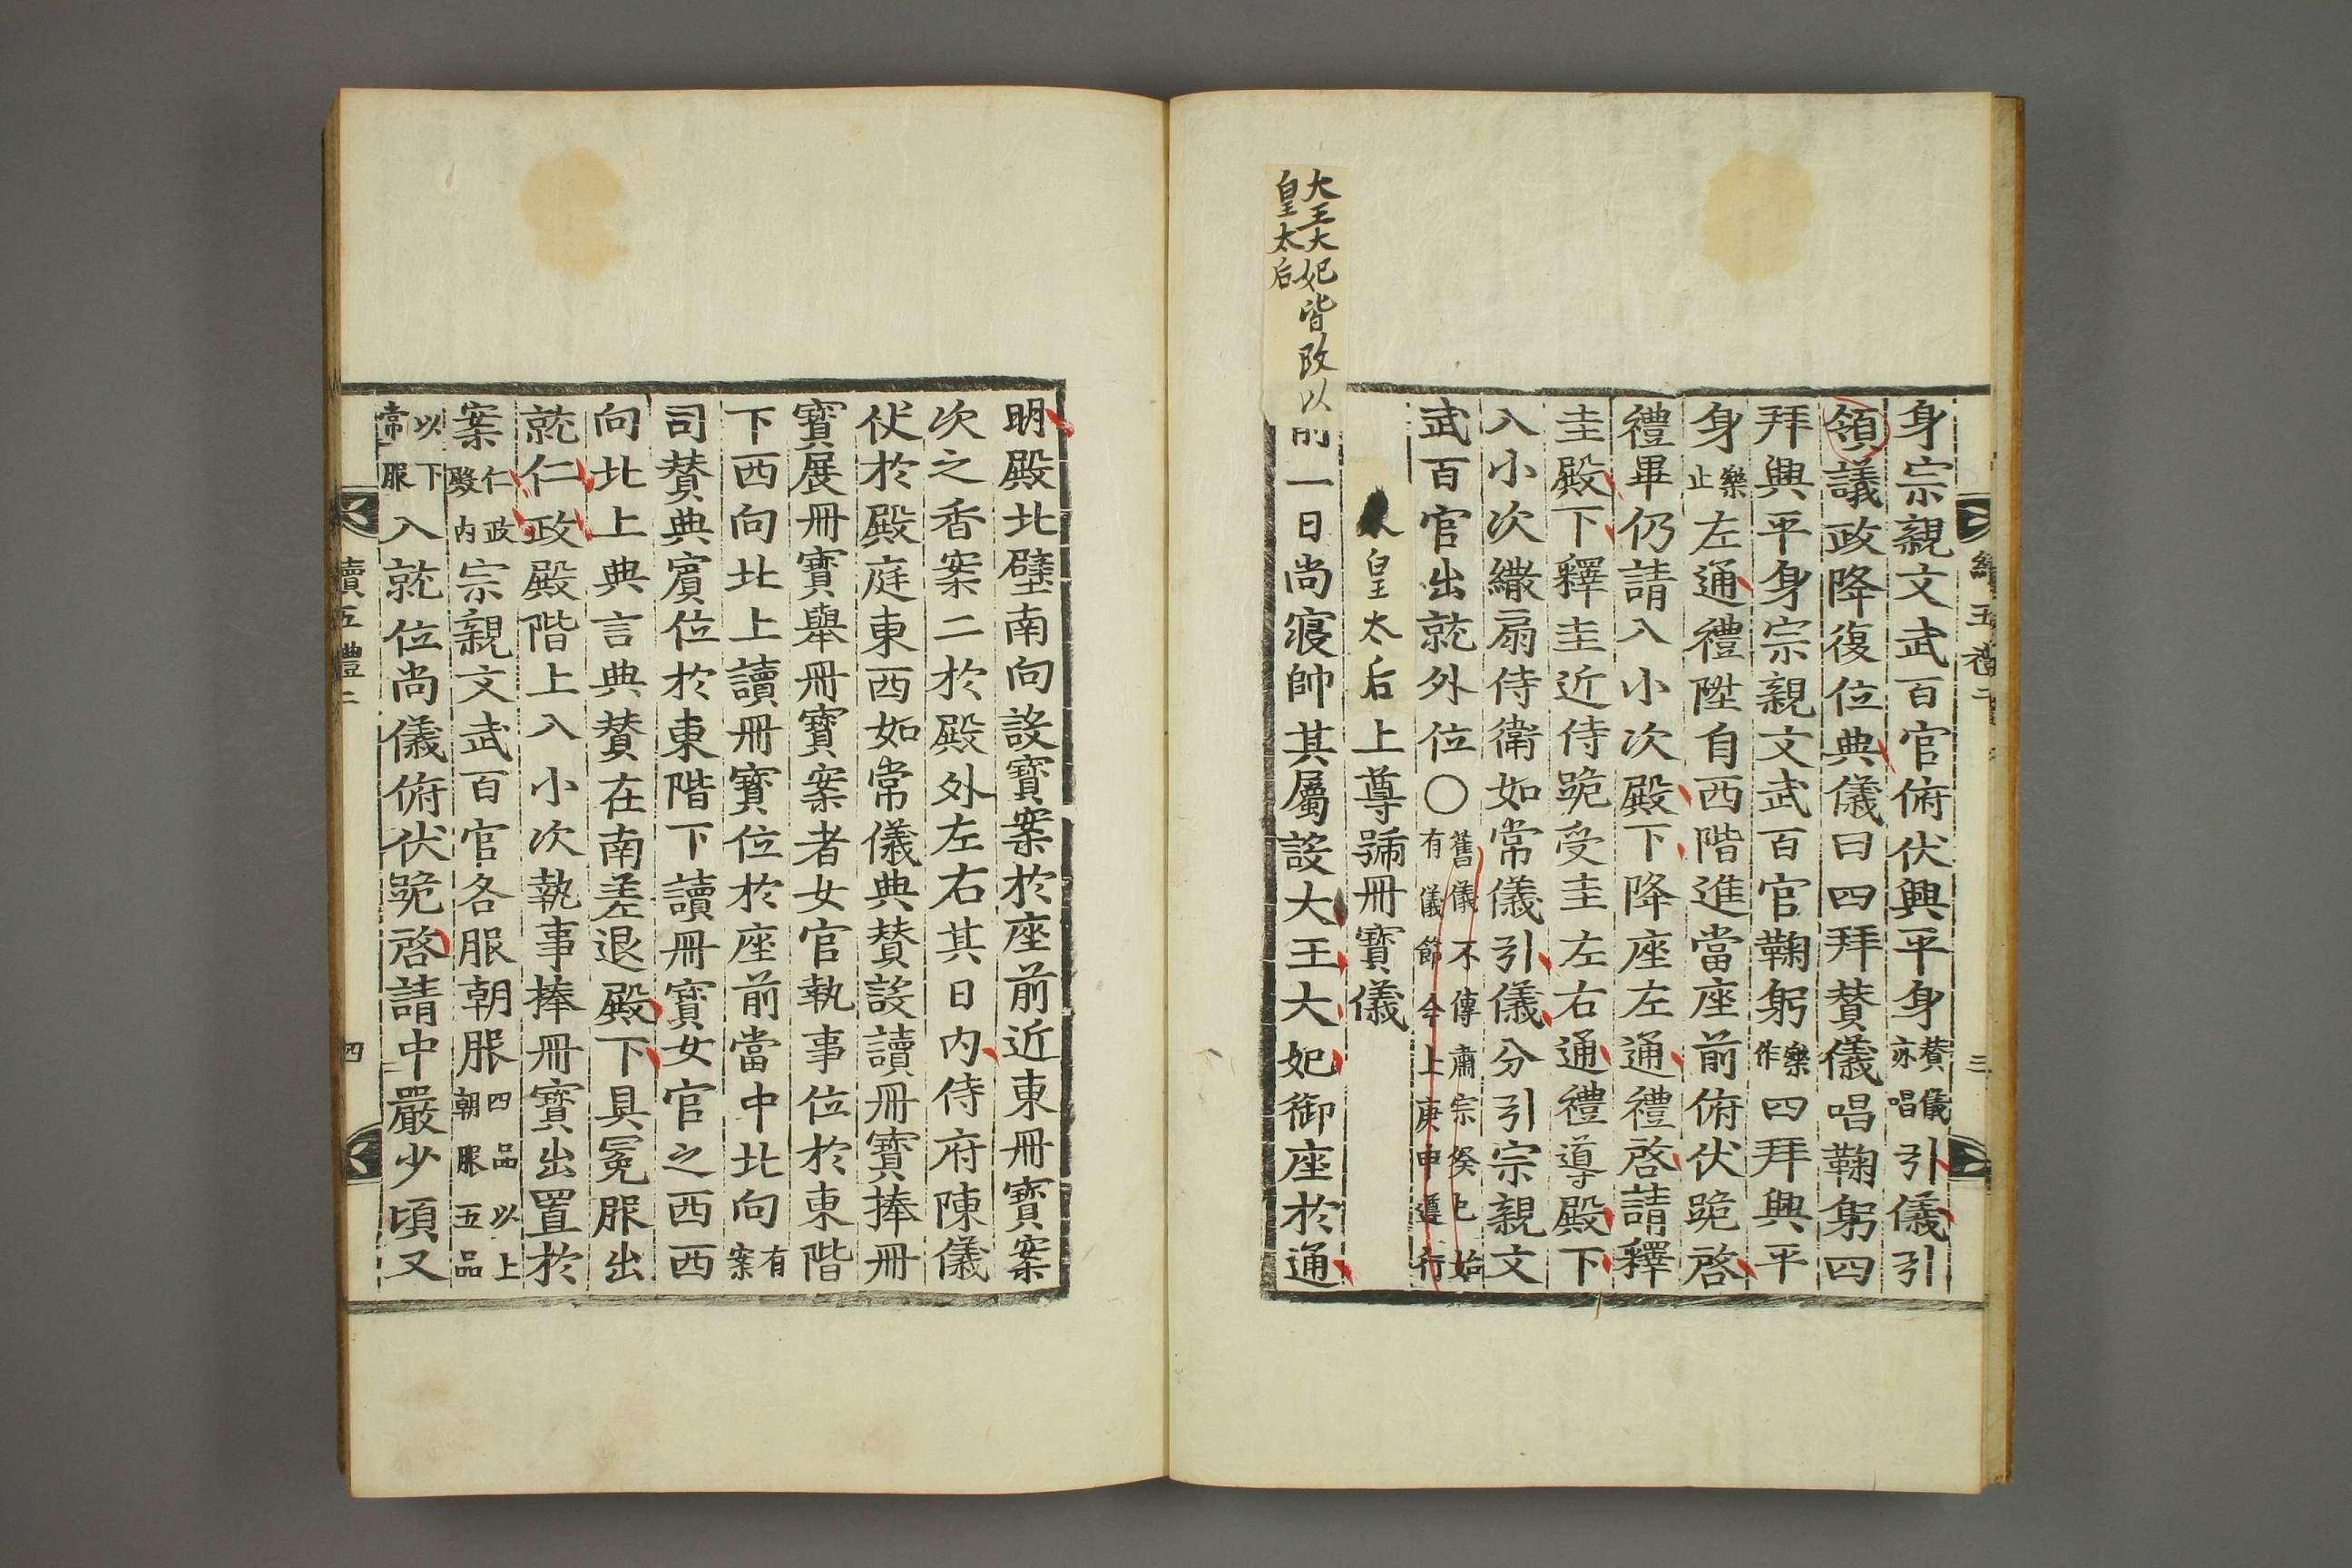 續五禮二
三
身宗親文武百官俯伏興平身贊儀亦唱引儀引
領議政降復位典儀曰四拜贊儀唱鞠躬四
拜興平身宗親文武百官鞠躬樂作四拜興平
身樂止左通禮陞自西階進當座前俯伏跪啓
禮畢仍請入小次殿下降座左通禮啓請釋
圭殿下釋圭近侍跪受圭左右通禮導殿下
入小次繖扇侍衛如常儀引儀分引宗親文
武百官出就外位〇舊儀不傳肅宗癸巳始有儀節今上庚申遵行
太皇太后上尊號冊寶儀
大王大妃皆改以
皇太后
前一日尙寢帥其屬設大王大妃御座於通
明殿北壁南向設寶案於座前近東冊寶案
次之香案二於殿外左右其日內侍府陳儀
仗於殿庭東西如常儀典贊設讀冊寶捧冊
寶展冊寶擧冊寶案者女官執事位於東階
下西向北上讀冊寶位於座前當中北向有案
司贊典賓位於東階下讀冊寶女官之西西
向北上典言典贊在南差退殿下具冕服出
就仁政殿階上入小次執事捧冊寶出置於
案仁政殿內宗親文武百官各服朝服四品以上朝服五品
以下常服入就位尙儀俯伏跪啓請中嚴少頃又
續五禮二
四